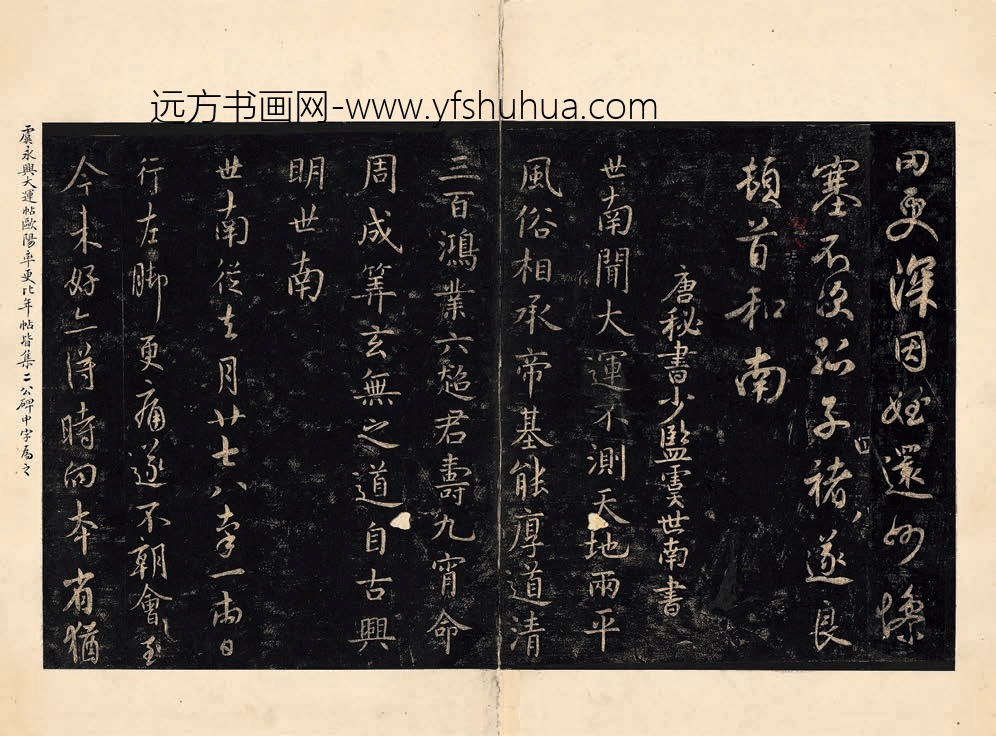 远方书画网-www.yfshuhua.com
田更深因姪還州慘
塞不次孤子褚遂良
頓首和南
唐秘書少監虞世南書
世南聞大運不測天地兩平
風俗相承帝基能厚道清
三百鴻業六超君壽九霄命
周成筭玄無之道自古興
明世南
世南從去月廿七八率一兩日
行左脚更痛遂不朝會至
今未好亦得時向本省猶
虞永興大運帖歐陽率更比年帖皆集二公碑中字為之